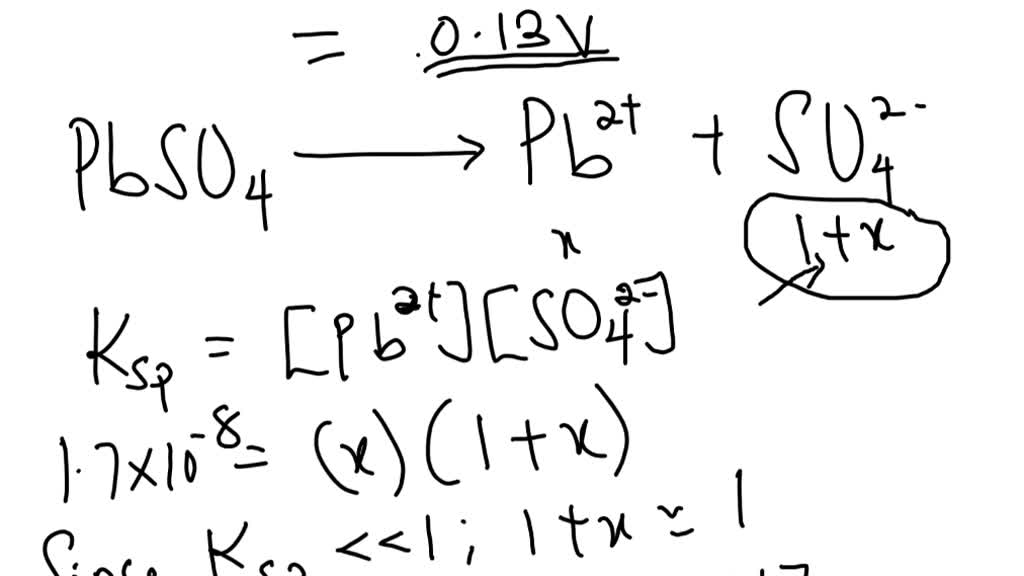 = 0.13V
PbSO₄ ⟶ Pb²⁺ + SO₄²⁻
x 1+x
Ksp = [Pb²⁺][SO₄²⁻]
1.7×10⁻⁸ = (x)(1+x)
Since Ksp <<1; 1+x ≃ 1